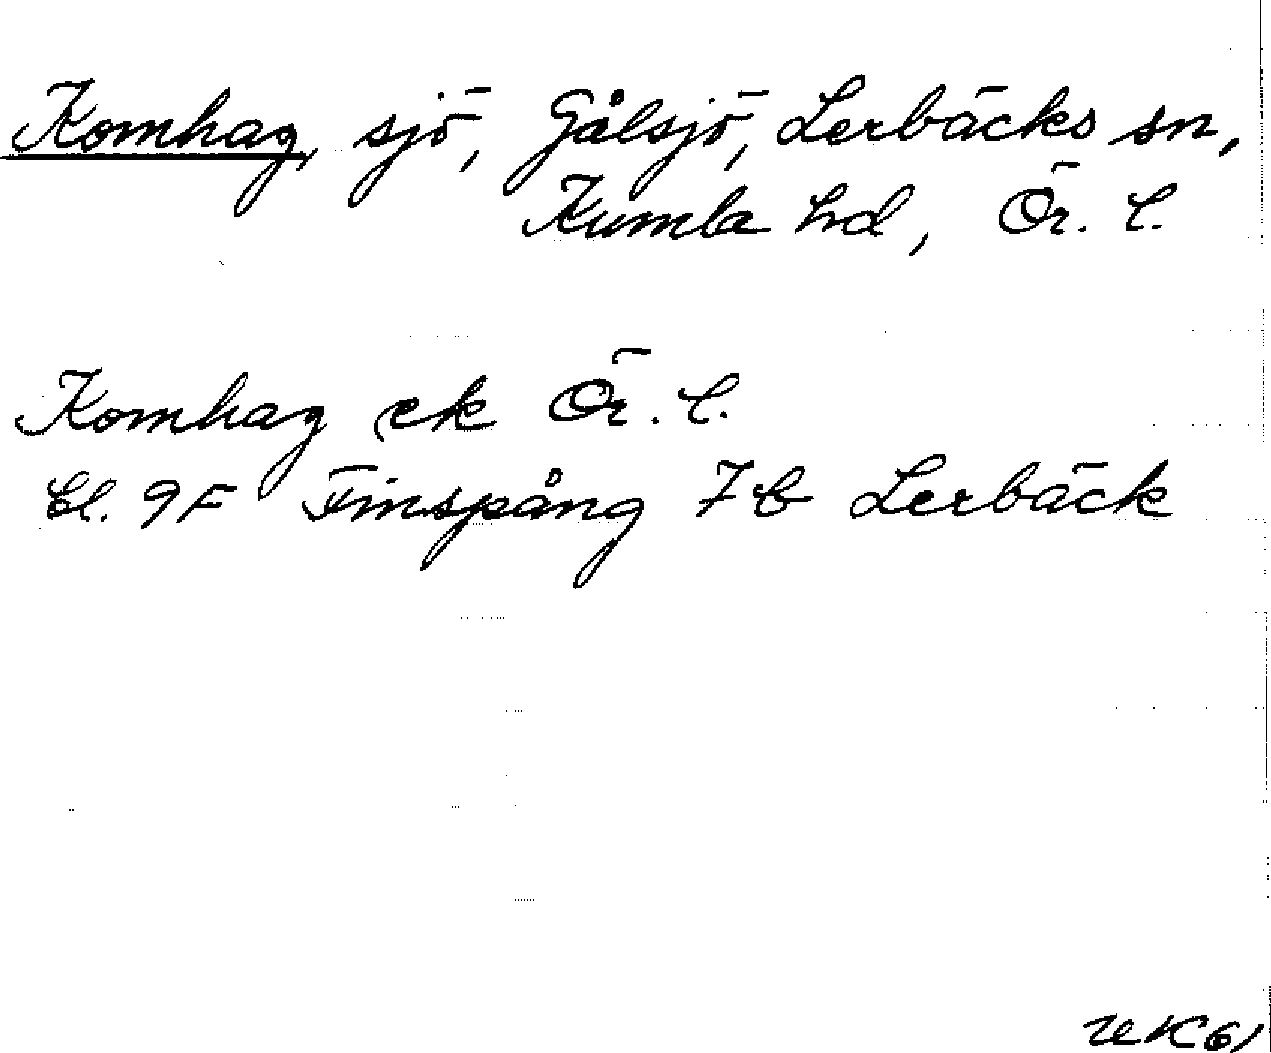 Komhag, sjö, Gålsjö, Lerbäcks sn,
Kumla hd, Ör. l.
Komhag ek Ör. l.
bl. 9F Finspång 7b Lerbäck